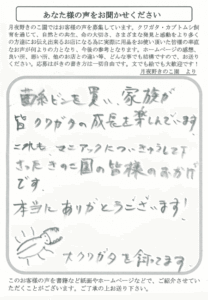 あなた様の声をお聞かせください
月夜野きのこ園ではお客様の声を募集しています。クワガタ・カブトムシ飼
育を通じて、自然との共生、命の大切さ、さまざまな発見と感動をより多く
の方達にお伝え出来るお店になる為に実際に用品をお使い頂いた皆様の率直
なお声が何よりの力となり、今後の参考となります。ホームページの感想、
良い所、悪い所、他のお店との違い等、どんな事でも結構ですので、お送り
ください。応募はお書きの書き方は一切自由です。文でも絵でも大歓迎です！
月夜野きのこ園　より
菌糸ビンを買い、家族が
皆クワガタの成長を楽しんでいます
これも、マニアックについきゅうして下
さったきのこ園の皆様のおかげ
です。
本当にありがとうございます！
オオクワガタを飼ってます
このお客様の声を書籍など紙面やホームページなどで、ご紹介させてい
ただくことがございます。ご了承の上お送り下さい。